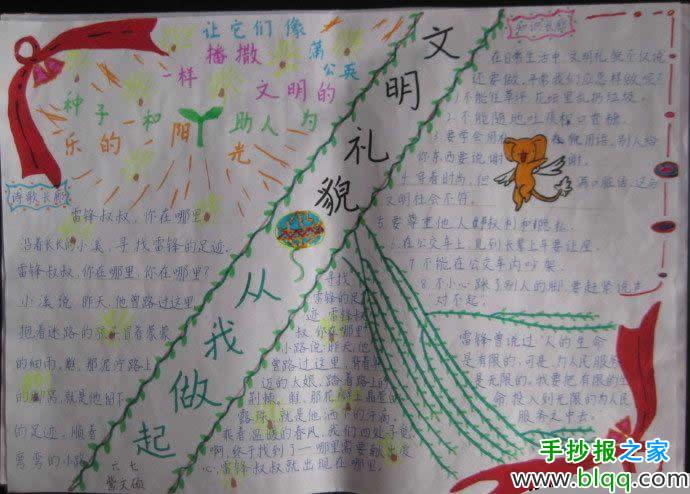 让它们像
蒲公英
一样播撒
文明的
种子和阳光
助人为
乐的
文明礼貌
从我做起
诗歌长廊
雷锋叔叔,你在哪里
沿着长长的小溪,寻找雷锋的足迹.
雷锋叔叔,你在哪里,你在哪里?
小溪说:昨天,他曾路过这里,
抱着迷路的孩子,冒着蒙蒙
的细雨,瞧,那泥泞路上
的脚窝,就是他留下
的足迹,顺着
弯弯的小路
寻找
雷锋的足
迹,雷锋叔
叔,你在哪里
小路说:昨天,他
曾路过这里,背着年
迈的大娘,踏着路上的
荆棘,瞧,那花瓣上晶莹的
露珠,就是他洒下的汗滴,
乘着温暖的春风,我们四处寻觅,
啊,终于找到了—哪里需要献出爱
心,雷锋叔叔就出现在哪里.
六七
知识长廊
在日常生活中,文明礼貌不仅说
还要做,平常我们应怎样做呢?
1.不能往草坪,花坛里乱扔垃圾.
2.不能随地吐痰,
3.要学会用
礼貌用语,别人给
你东西要说谢谢.
4.穿着时尚,但
满口脏话,这与
文明社会不符.
5.要尊重他人的权利和隐私.
6.在公交车上,见到长辈上车要让座.
7.不能在公交车内吵架.
8.不小心踩了别人的脚,要赶紧说声
对不起.
雷锋曾说过"人的生命
是有限的,可是,为人民服务
是无限的,我要把有限的生
命,投入到无限的为人民
服务之中去.
手抄报之家
www.blqq.com